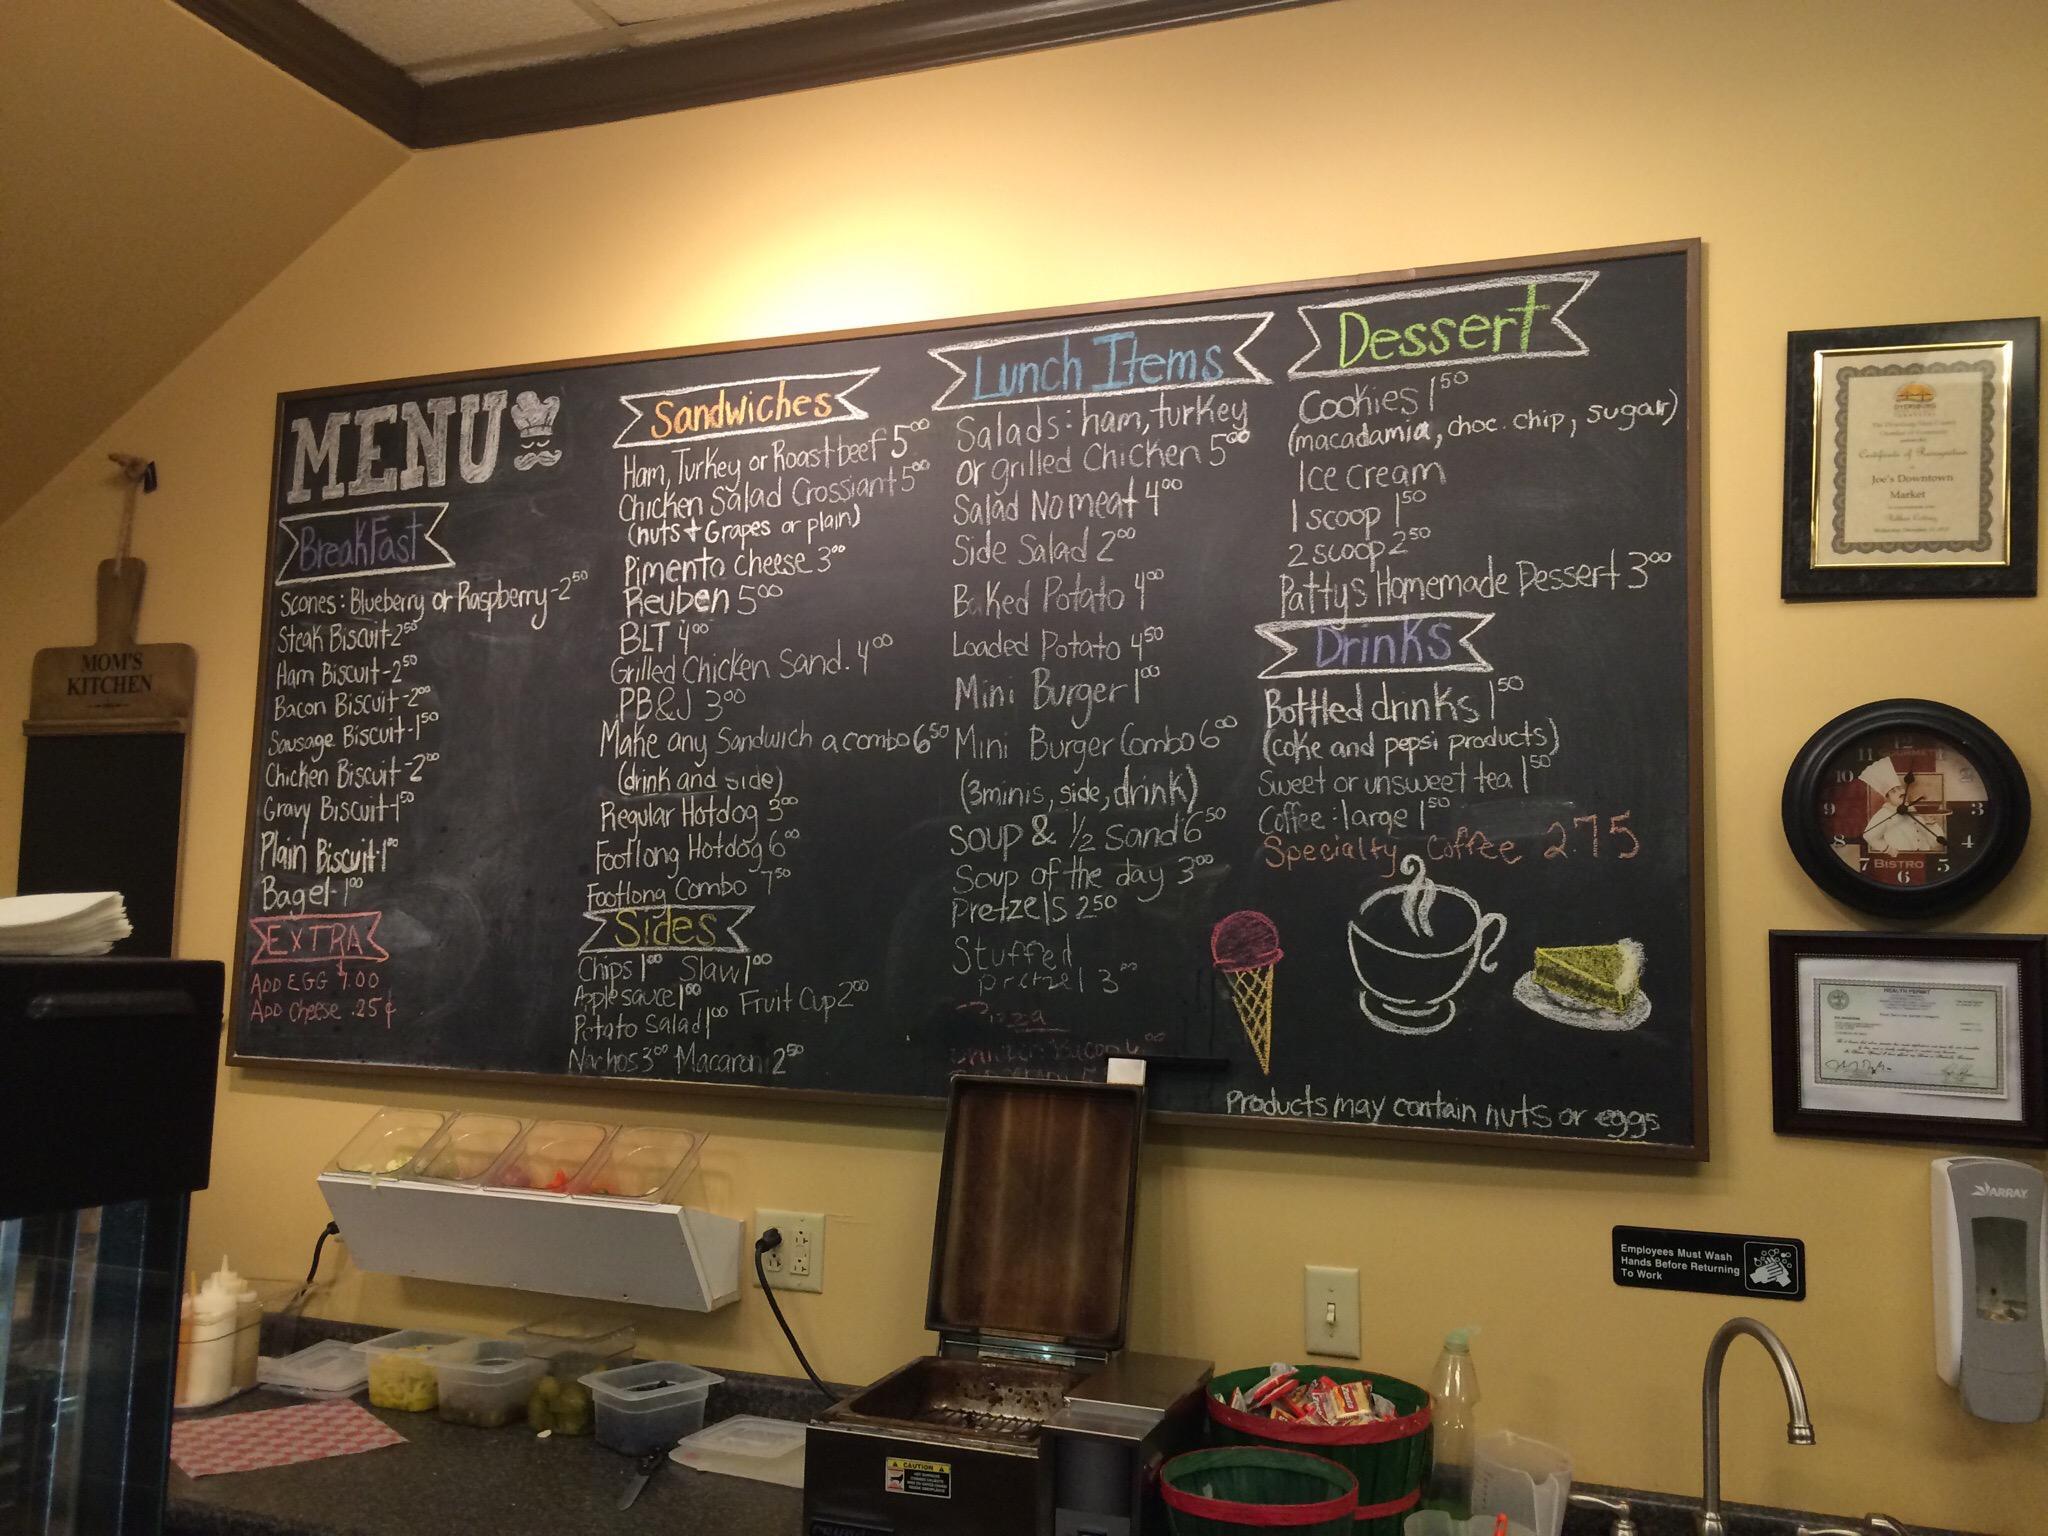 MENU
BreakFast
Scones: Blueberry or Raspberry-2 50
Steak Biscuit-2 50
Ham Biscuit-2 50
Bacon Biscuit-2 00
Sausage Biscuit-1 50
Chicken Biscuit-2 00
Gravy Biscuit-1 50
Plain Biscuit-1 00
Bagel-1 00
EXTRA
ADD EGG 1.00
ADD Cheese .25¢
Sandwiches
Ham, Turkey or Roastbeef 5 00
Chicken Salad Crossiant 5 00
(nuts + Grapes or plain)
Pimento cheese 3 00
Reuben 5 00
BLT 4 00
Grilled Chicken Sand. 4 00
PB&J 3 00
Make any Sandwich a combo 6 50
(drink and side)
Regular Hotdog 3 00
Footlong Hotdog 6 00
Footlong Combo 7 50
Sides
Chips 1 00 Slaw 1 00
Applesauce 1 00 Fruit Cup 2 00
Potato Salad 1 00
Nachos 3 00 Macaroni 2 50
Lunch Items
Salads: ham, turkey
or grilled Chicken 5 00
Salad No meat 4 00
Side Salad 2 00
Baked Potato 4 00
Loaded Potato 4 50
Mini Burger 1 00
Mini Burger Combo 6 00
(3minis, side, drink)
Soup & 1/2 Sand 6 50
Soup of the day 3 00
Pretzels 2 50
Stuffed
pretzel 3 00
Pizza
Bacon 6 00
Dessert
Cookies 1 50
(macadamia, choc. chip, sugar)
Ice cream
1 scoop 1 50
2 scoop 2 50
Pattys Homemade Dessert 3 00
Drinks
Bottled drinks 1 50
(coke and pepsi products)
Sweet or unsweet tea 1 50
Coffee: large 1 50
Specialty Coffee 2.75
Products may contain nuts or eggs
MOM'S
KITCHEN
DYERSBURG
Certificate of Recognition
Joe's Downtown
Market
GOURMET
12
1
2
3
4
5
6
7
8
9
10
11
BISTRO
HEALTH PERMIT
ARRAY
Employees Must Wash
Hands Before Returning
To Work
CAUTION